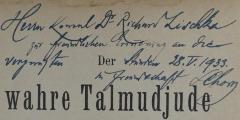 Herrn Konsul Dr Richard Lischka
zur freundlichen Erinnerung an die
vergnügten
Der 28. V. 1933.
in Freundschaft
wahre Talmudjude